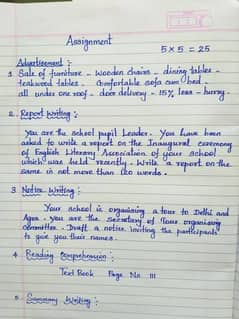 Assignment
5 x 5 = 25
Advertisement :
1. Sale of furniture - Wooden chairs - dining tables -
teakwood tables - Comfortable sofa cum bed -
all under one roof - door delivery - 15% less - hurry.
2. Report Writing :
You are the school pupil Leader. You have been
asked to write a report on the Inaugural ceremony
of English Literary Association of your school
which was held recently. Write a report on the
same in not more than 100 words.
3 Notice Writing :
Your school is organising a tour to Delhi and
Agra. You are the secretary of Tour organising
committee. Draft a notice inviting the participants
to give you their names.
4 Reading Comprehension :
Text Book Page No 111
5 Summary Writing :